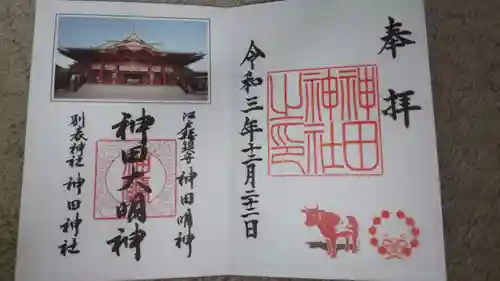 奉拝
神田
神社
之印
令和三年十二月二十二日
江戸総鎮守 神田明神
神田大明神
別表神社 神田神社